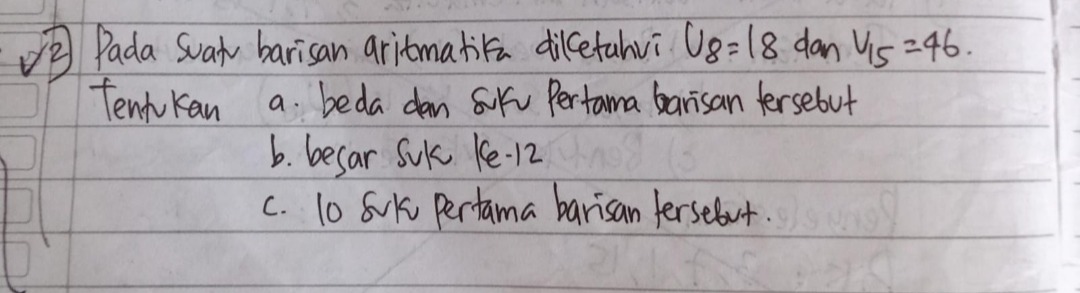 2) Pada suatu barisan aritmatika diketahui U8 = 18 dan U15 = 46.
Tentukan a. beda dan suku Pertama barisan tersebut
b. besar suk ke-12
c. 10 suku Pertama barisan tersebut.